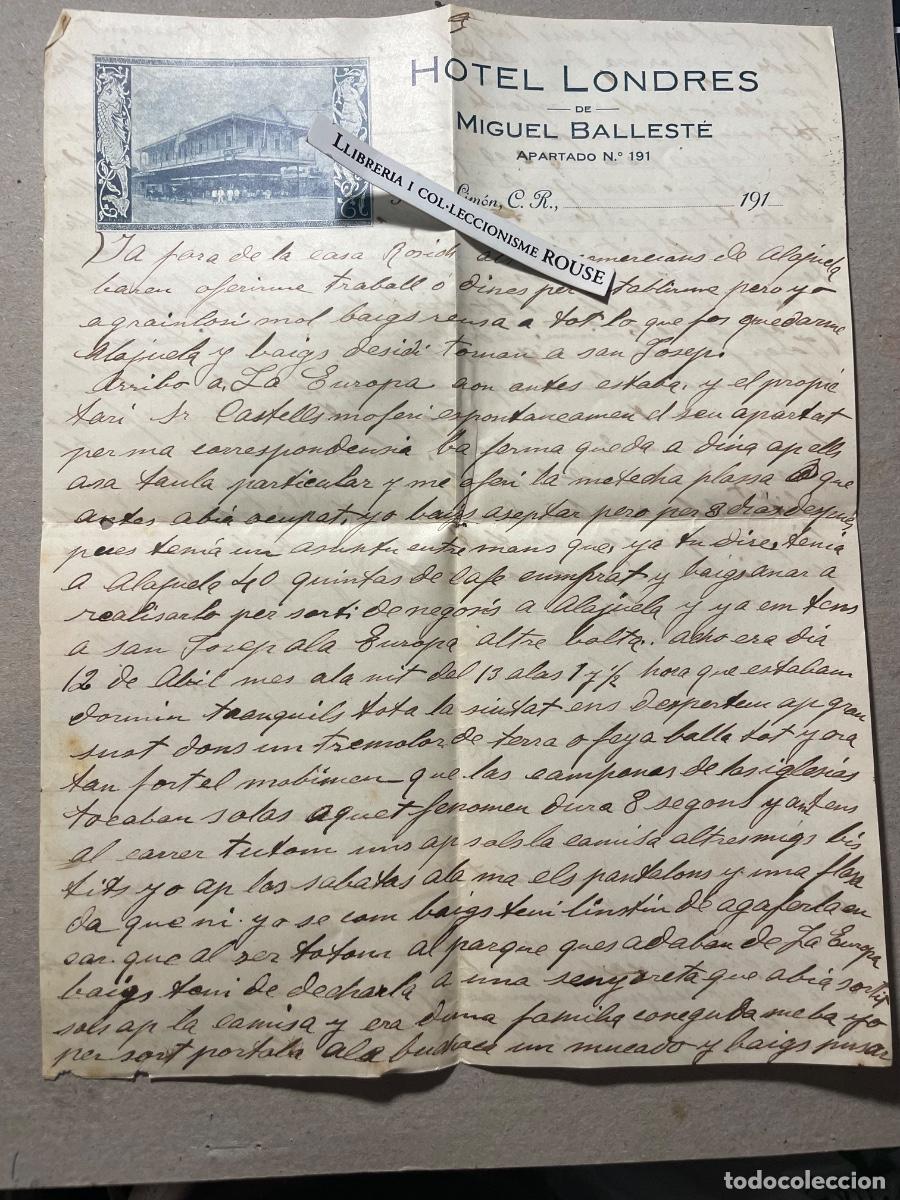 HOTEL LONDRES
DE
MIGUEL BALLESTÉ
APARTADO N.º 191
Limón, C. R., 191
LLIBRERIA I COL·LECCIONISME ROUSE
Ya fora de la casa comercians de Alajuela
baren oferirme traball ó dines per establirme pero yo
agrainlosi mol baigs reusa a tot lo que fos quedarme
Alajuela y baigs desidi tornan a san Josep.
Arribo a La Europa aon antes estaba, y el propie
tari Sr Castells moferi espontaneamen el seu apartat
per ma correspondensia ba forma queda a dina ap ells
asa taula particular y me oferi la metecha plassa que
antes abia ocupat, yo baigs aseptar pero per 8 dias despues
pues tenia un asuntu entre mans que, ya tu dire, tenia
a Alajuela 40 quintas de Cafe cumprat y baigs anar a
realisarlo per sorti de negosis a Alajuela y ya em tens
a san Josep ala Europa altre bolta. acho era dia
12 de Abil mes ala nit del 13 alas 1 y ½ hora que estabam
dormin tranquils tota la siutat ens despertem ap gran
sust dons un tremolor de terra o feya balla tot y era
tan fort el mobimen que las campanas de las iglesias
tocaban solas aquet fenomen dura 8 segons y
al carrer tutom uns ap sols la camisa altres migs bis
tits yo ap las sabatas ala ma els pantalons y una flasa
da que ni yo se com baigs teni linstin de agaferla en
car que al ser totom al parque ques adaban de La Europa
baigs teni de decharla a una senyoreta que abia sortit
sols ap la camisa y era duna familia coneguda meba yo
per sort portaba ala un mucado y baigs pusar
todocoleccion